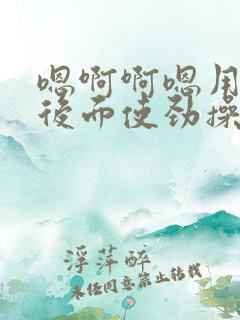 嗯啊啊嗯用
后而使劲操
浮萍醉
未经同意禁止转载